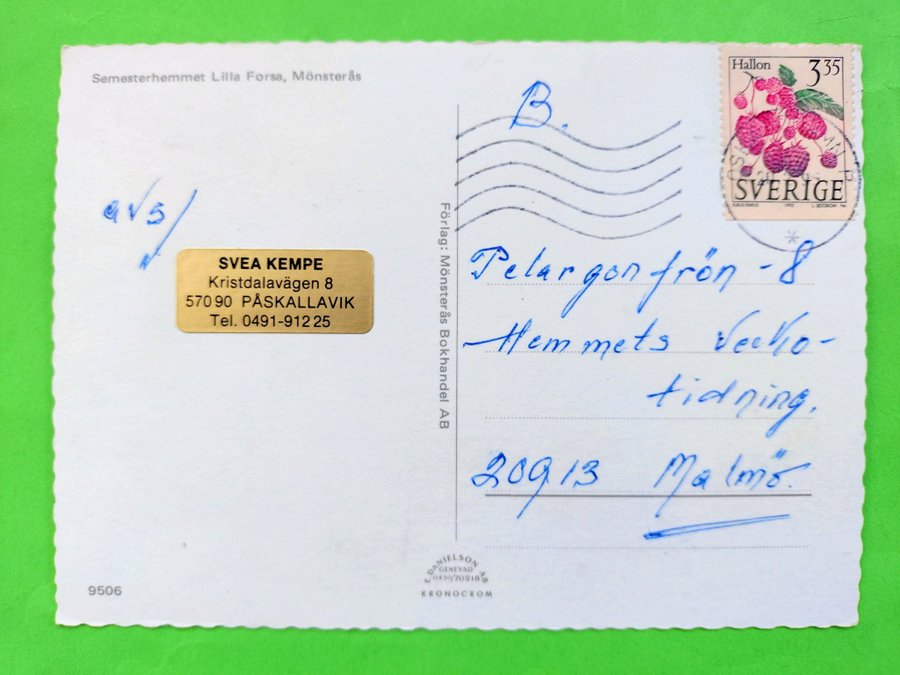 Semesterhemmet Lilla Forsa, Mönsterås
B.
Hallon 3 35
SVERIGE
avs/
SVEA KEMPE
Kristdalavägen 8
570 90 PÅSKALLAVIK
Tel. 0491-912 25
Förlag: Mönsterås Bokhandel AB
Pelargonfrön - 8
Hemmets Vecko-
tidning.
20913 Malmö.
E. DANIELSON AB
GENEVAD
0430/70218
KRONOCROM
9506